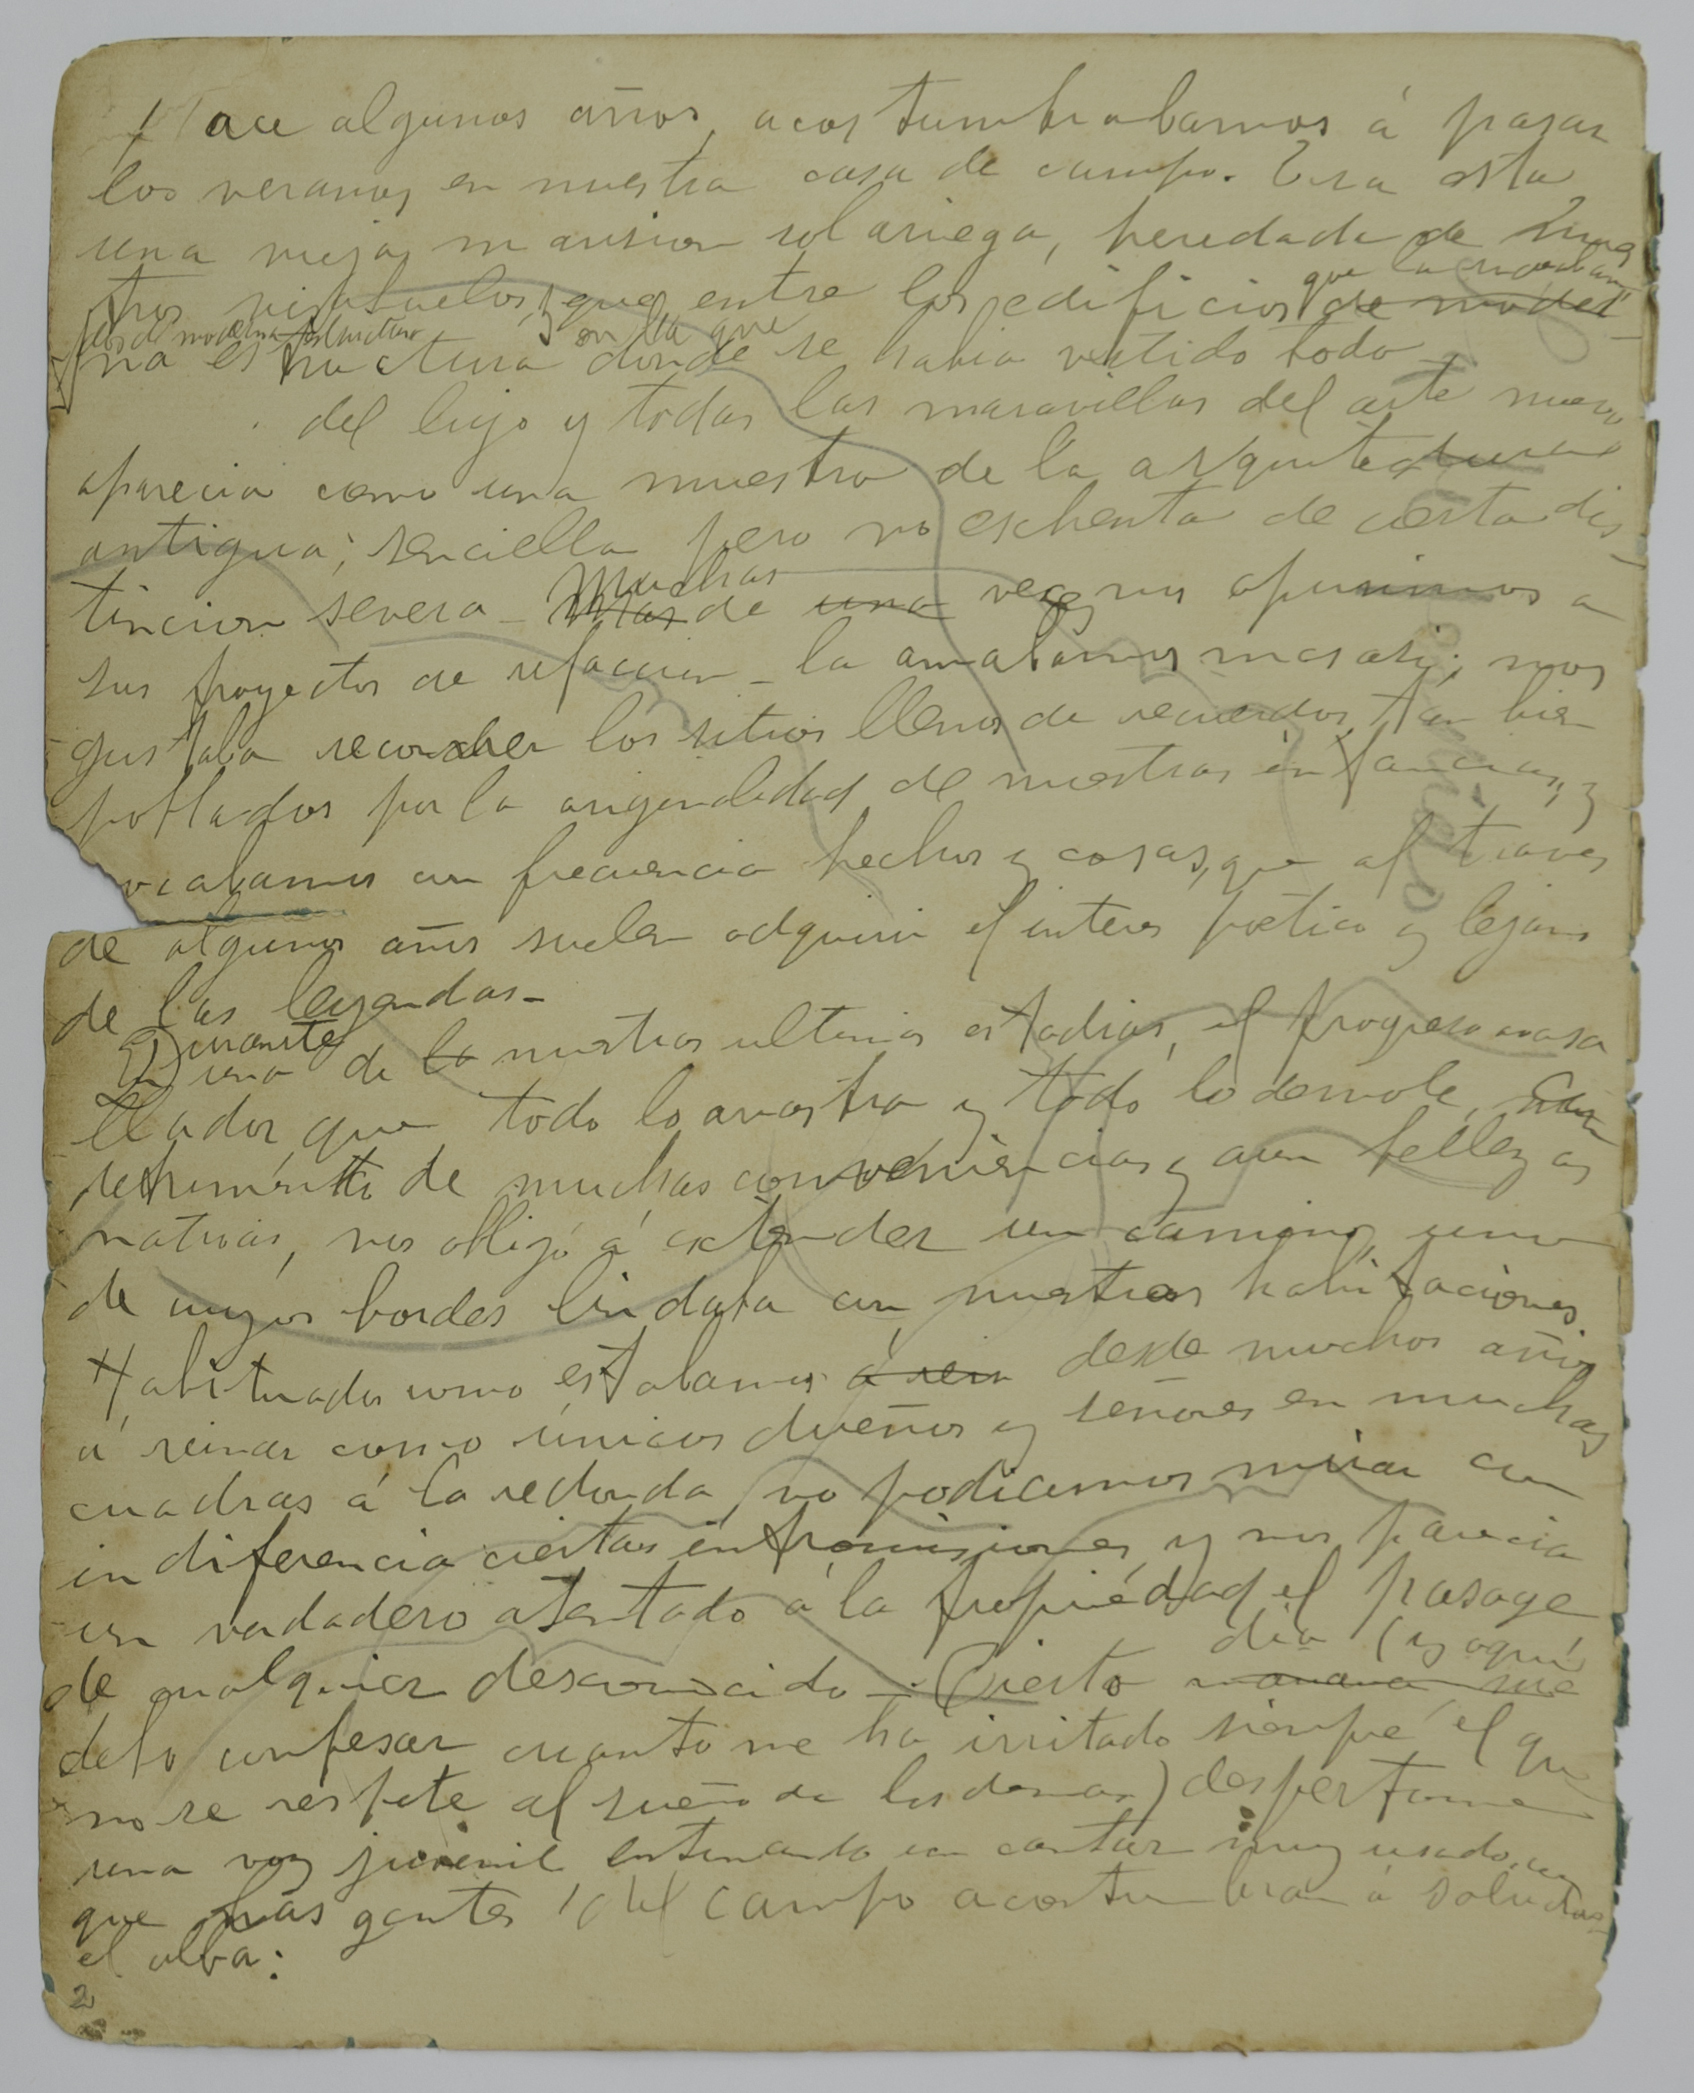 Hace algunos años, acostumbrabamos á pasar
los veranos en nuestra casa de campo. Era esta
una vieja mansion solariega, heredada de nues
tros visabuelos, y que entre los edificios que la rodeaban de moder
de moderna estructura
na estructura donde en la que se habia vertido todo
del lujo y todas las maravillas del arte nuevo
aparecia como una muestra de la arquitectura
antigua; sencilla pero no eschenta de cierta dis
tincion severa_ Muchas Mas de una veces nos opusimos a
sus proyectos de refaccion_ la amabamos mas asi; nos
gustaba recorrer los sitios llenos de recuerdos, tan bien
poblados por la originalidad de nuestras infancias, y
vocabamos con frecuencia hechos y cosas, que al traves
de algunos años suelen adquirir el interes poético y lejano
de las leyendas_
Durante En una de la nuestras ultimas estadias, el progreso avasa
llador, que todo lo arrastra y todo lo demole, con
detrimento de muchas conveniencias y aun bellezas
nativas, nos obligó á extender un camino, uno
de cuyos bordes lindaba con nuestras habitaciones.
Habituados como estabamos á rein desde muchos años
á reinar como únicos dueños y señores en muchas
cuadras á la redonda, no podiamos mirar con
indiferencia ciertas intromisiones, y nos parecia
un verdadero atentado á la propiedad el pasage
de cualquier desconocido_ Cierto dia (y aqui mañana me
debo confesar cuanto me ha irritado siempre el que
no se respete al sueño de los demas) despertome
una voz juvenil entonando un cantar muy usado, con
que las gentes del campo acostumbran á saludar
el alba:
2